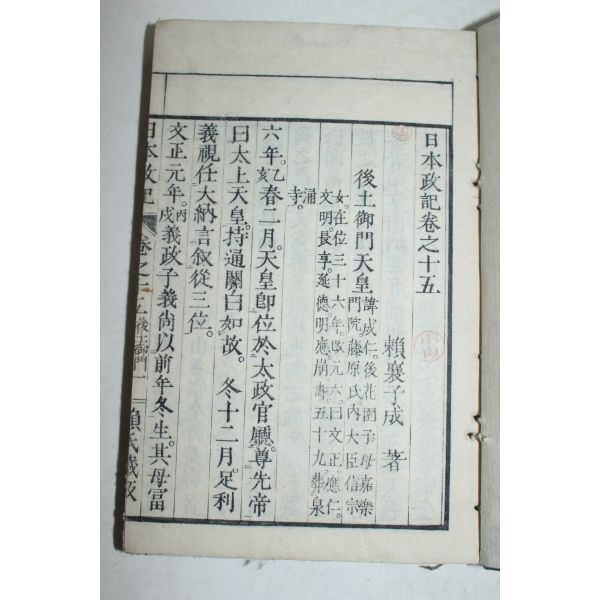 日本政記卷之十五
賴襄子成 著
後土御門天皇
諱成仁。後花園子。母嘉樂
門院。藤原氏。內大臣信宗
女。在位三十六年。改元六。曰文正。應仁。
文明。長享。延德。明應。崩。壽五十九。葬泉
涌寺。
六年。乙亥春二月。天皇卽位於太政官廳。尊先帝
曰太上天皇。持通關白如故。冬十二月。足利
義視任大納言。敘從三位。
文正元年。丙戌義政子義尚以前年冬生。其母富
日本政記 卷之十五 後土御門 一 賴氏藏板